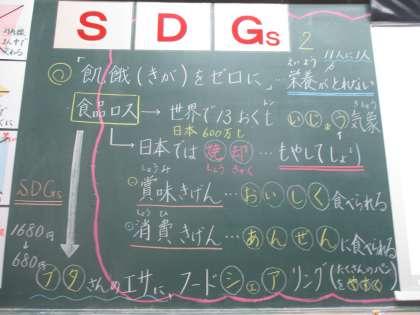 SDGs 2
11人に1人
①「飢餓(きが)をゼロに」…栄養がとれない
えいよう
食品ロス→世界で13おくt
トン
いじょう気象
きしょう
日本600万t
→日本では焼却…もやしてしょり
しょうきゃく
しょうみ
・賞味きげん…おいしく食べられる
しょうひ
・消費きげん…あんぜんに食べられる
SDGs
1680円
↓
680円
ブタさんのエサに、フードシェアリング(たくさんのパンをやすく)